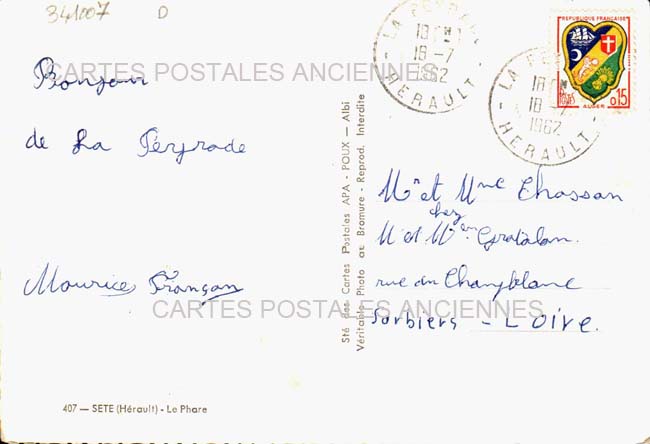 341007 D
Bonjour
de La Peyrade
Maurice Françon
407 — SETE (Hérault) - Le Phare
Sté des Cartes Postales APA - POUX — Albi
Véritable Photo au Bromure - Reprod. Interdite
LA PEYRADE
18 H
18-7
1962
HERAULT
LA PEYRADE
18 H
18-7
1962
HERAULT
REPUBLIQUE FRANÇAISE
POSTES
ALGER
0,15
Mr et Mme Chassan
chez
M et Mme Gratalon.
rue du Champblanc
Sorbiers - LOire.
CARTES POSTALES ANCIENNES
CARTES POSTALES ANCIENNES